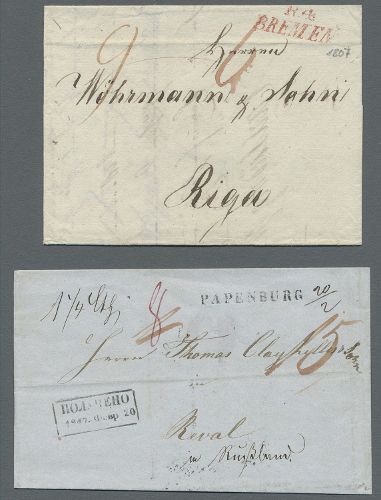 R.4
BREMEN
1807
9 6
Herren
Wöhrmann & Sohn
Riga
PAPENBURG 20/2
1 1/4 Lth
8
15
Herrn Thomas Clayhills Sohn
in
Reval
in Rußland.
ПОЛУЧЕНО
20